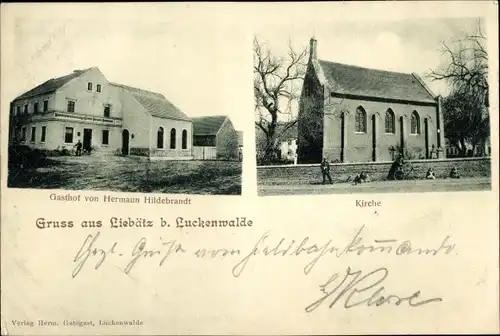 Gasthof von Hermann Hildebrandt
Kirche
Gruss aus Liebätz b. Luckenwalde
Hgl. Grüße vom Feldbahnkommando
Verlag Herm. Gutegast, Luckenwalde